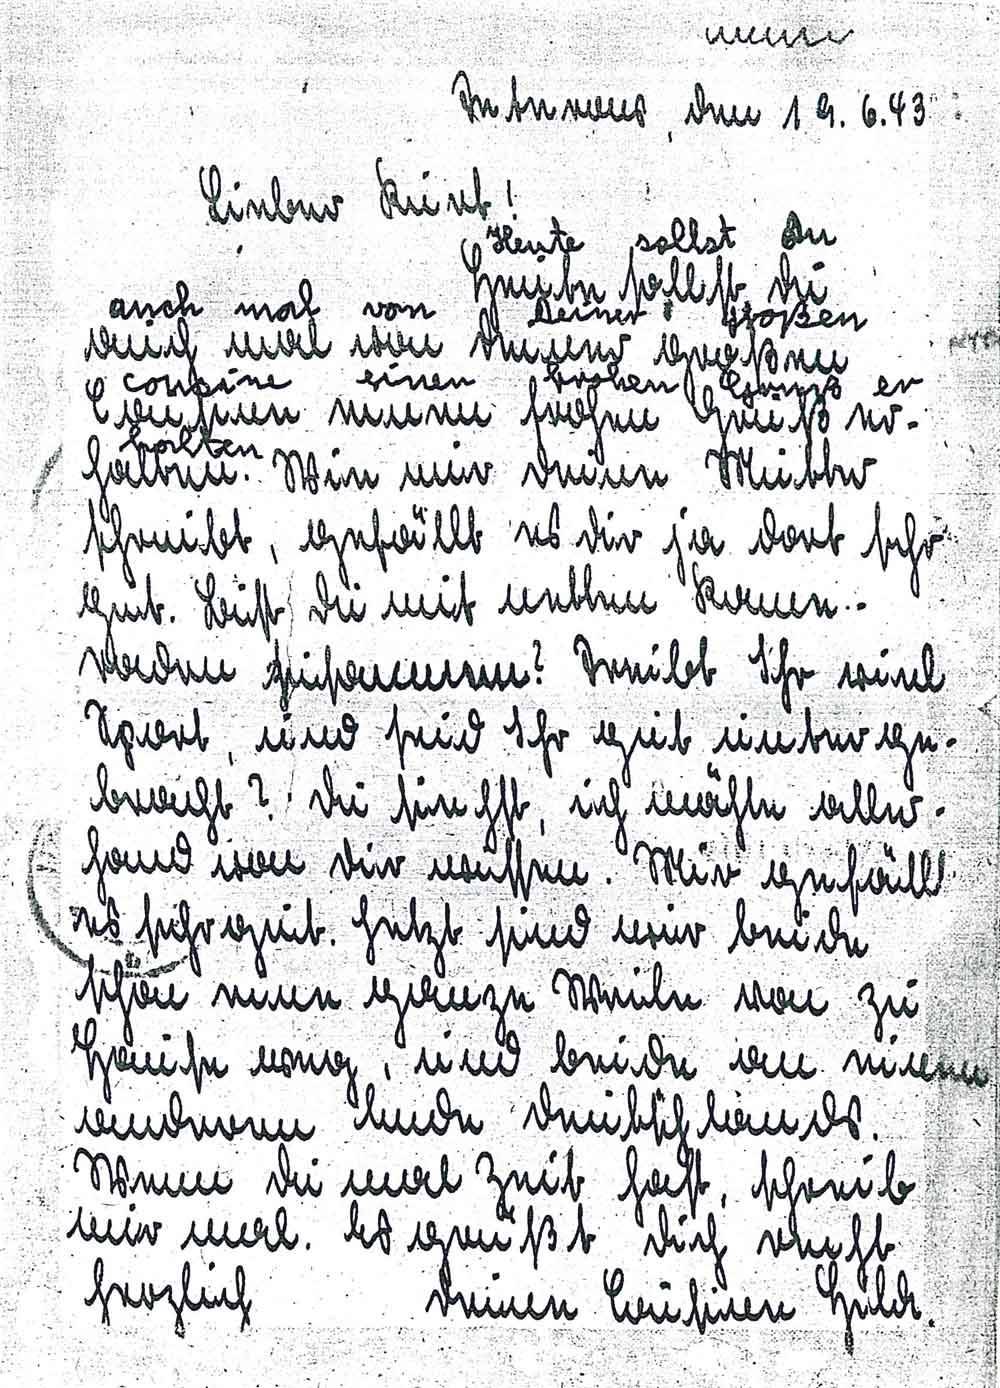 den 19.6.43
Lieber Kurt!
Heute sollst Du
Heute sollst du
auch mal von Deiner großen
auch mal von deiner großen
cousine einen frohen Gruß er
Cousine einen frohen Gruß er-
halten
halten. Wie mir deine Mutter
schreibt, gefällt es dir ja dort sehr
gut. Bist du mit netten Kame-
raden zusammen? Treibt Ihr viel
Sport, und seid Ihr gut unterge-
bracht? Du siehst, ich möchte aller-
hand von dir wissen. Mir gefällt
es sehr gut. Jetzt sind wir beide
schon eine ganze Weile von zu
Hause weg, und beide an einem
anderen Ende Deutschlands.
Wenn du mal Zeit hast, schreib
mir mal. Es grüßt dich recht
herzlich deine Cousine Hilde.